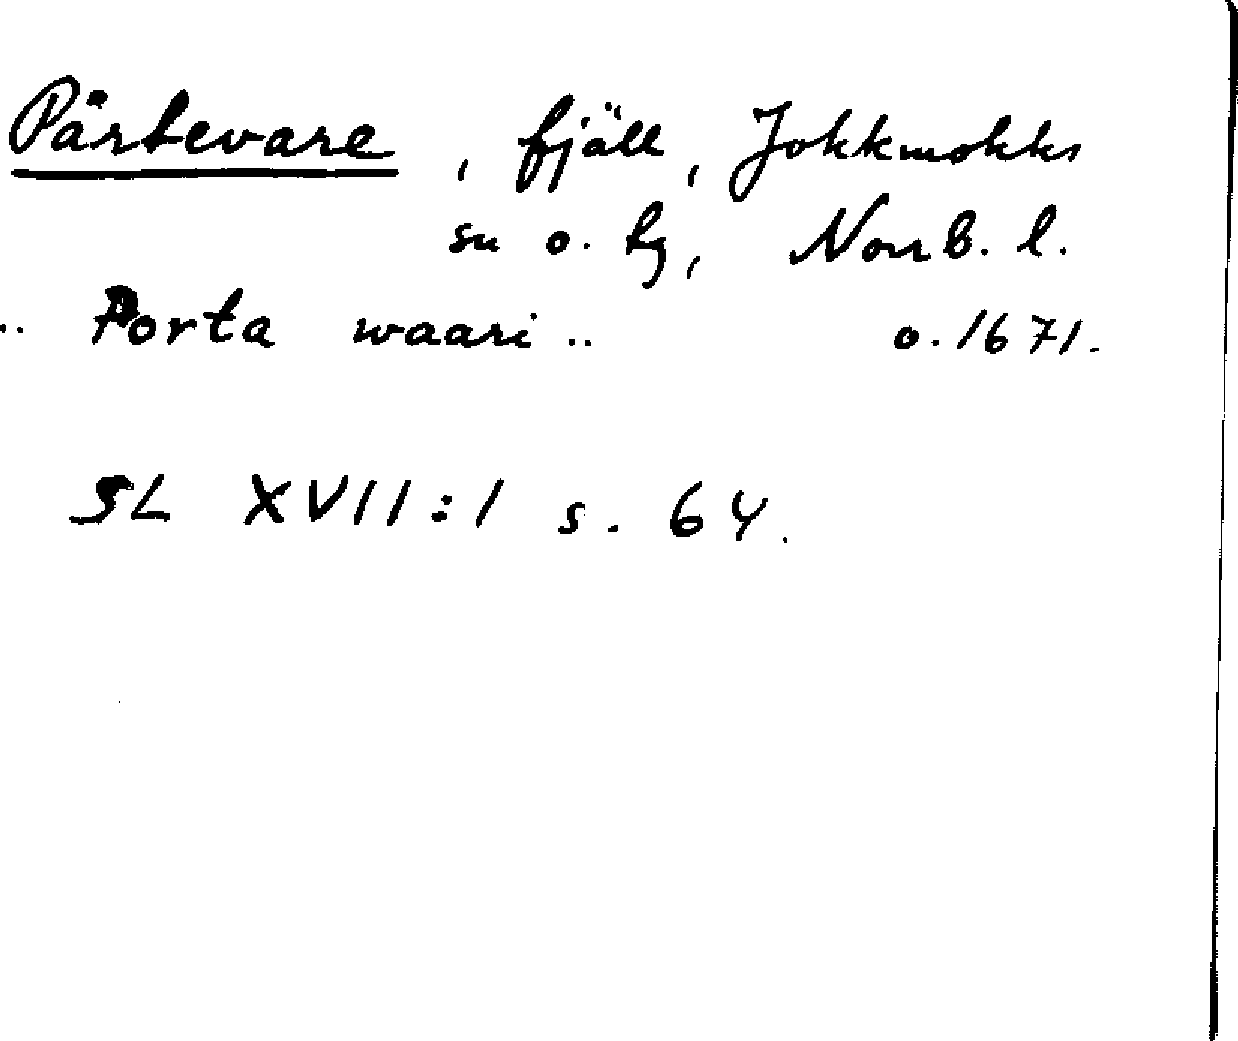 Pärtevare, fjäll, Jokkmokks
sn o. tg, Norrb. l.
.. Porta waari .. o. 1671.
SL XVII:1 s. 64.